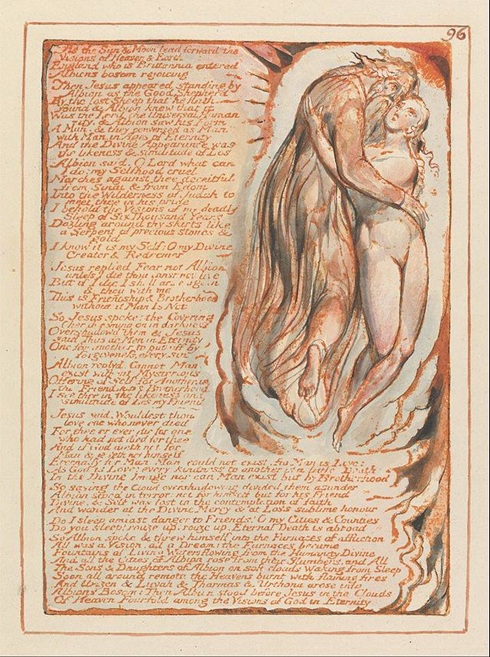 96
As the Sun & Moon lead forward the
Visions of Heaven & Earth
England who is Brittannia entered
Albions bosom rejoicing
Then Jesus appeared standing by
Albion as the Good Shepherd
By the lost Sheep that he hath
found & Albion knew that it
Was the Lord the Universal Human
ity, & Albion saw his Form
A Man. & they conversed as Man
with Man, in Ages of Eternity
And the Divine Appearance was
the likeness & similitude of Los
Albion said. O Lord what can
I do! my Selfhood cruel
Marches against thee deceitful
from Sinai & from Edom
Into the Wilderness of Judah to
meet thee in his pride
I behold the Visions of my deadly
Sleep of Six Thousand Years
Dazling around thy skirts like
a Serpent of precious stones &
gold
I know it is my Self: O my Divine
Creator & Redeemer
Jesus replied Fear not Albion
unless I die thou canst not live
But if I die I shall arise again
& thou with me
This is Friendship & Brotherhood
without it Man Is Not
So Jesus spoke! the Covering
Cherub coming on in darkness
Overshadowd them & Jesus
said Thus do Men in Eternity
One for another to put off by
forgiveness, every sin
Albion replyd. Cannot Man
exist without Mysterious
Offering of Self for Another, is
this Friendship & Brotherhood
I see thee in the likeness and
similitude of Los my Friend
Jesus said. Wouldest thou
love one who never died
For thee or ever die for one
who had not died for thee
And if God dieth not for
Man & giveth not himself
Eternally for Man Man could not exist. for Man is Love:
As God is Love: every kindness to another is a little Death
In the Divine Image nor can Man exist but by Brotherhood
So saying. the Cloud overshadowing divided them asunder
Albion stood in terror: not for himself but for his Friend
Divine, & Self was lost in the contemplation of faith
And wonder at the Divine Mercy & at Los's sublime honour
Do I sleep amidst danger to Friends! O my Cities & Counties
Do you sleep! rouze up, rouze up. Eternal Death is abroad
So Albion spoke & threw himself into the Furnaces of affliction
All was a Vision, all a Dream: the Furnaces became
Fountains of Living Waters flowing from the Humanity Divine
And all the Cities of Albion rose from their Slumbers, and All
The Sons & Daughters of Albion on soft clouds Waking from Sleep
Soon all around remote the Heavens burnt with flaming fires
And Urizen & Luvah & Tharmas & Urthona arose into
Albions Bosom: Then Albion stood before Jesus in the Clouds
Of Heaven Fourfold among the Visions of God in Eternity